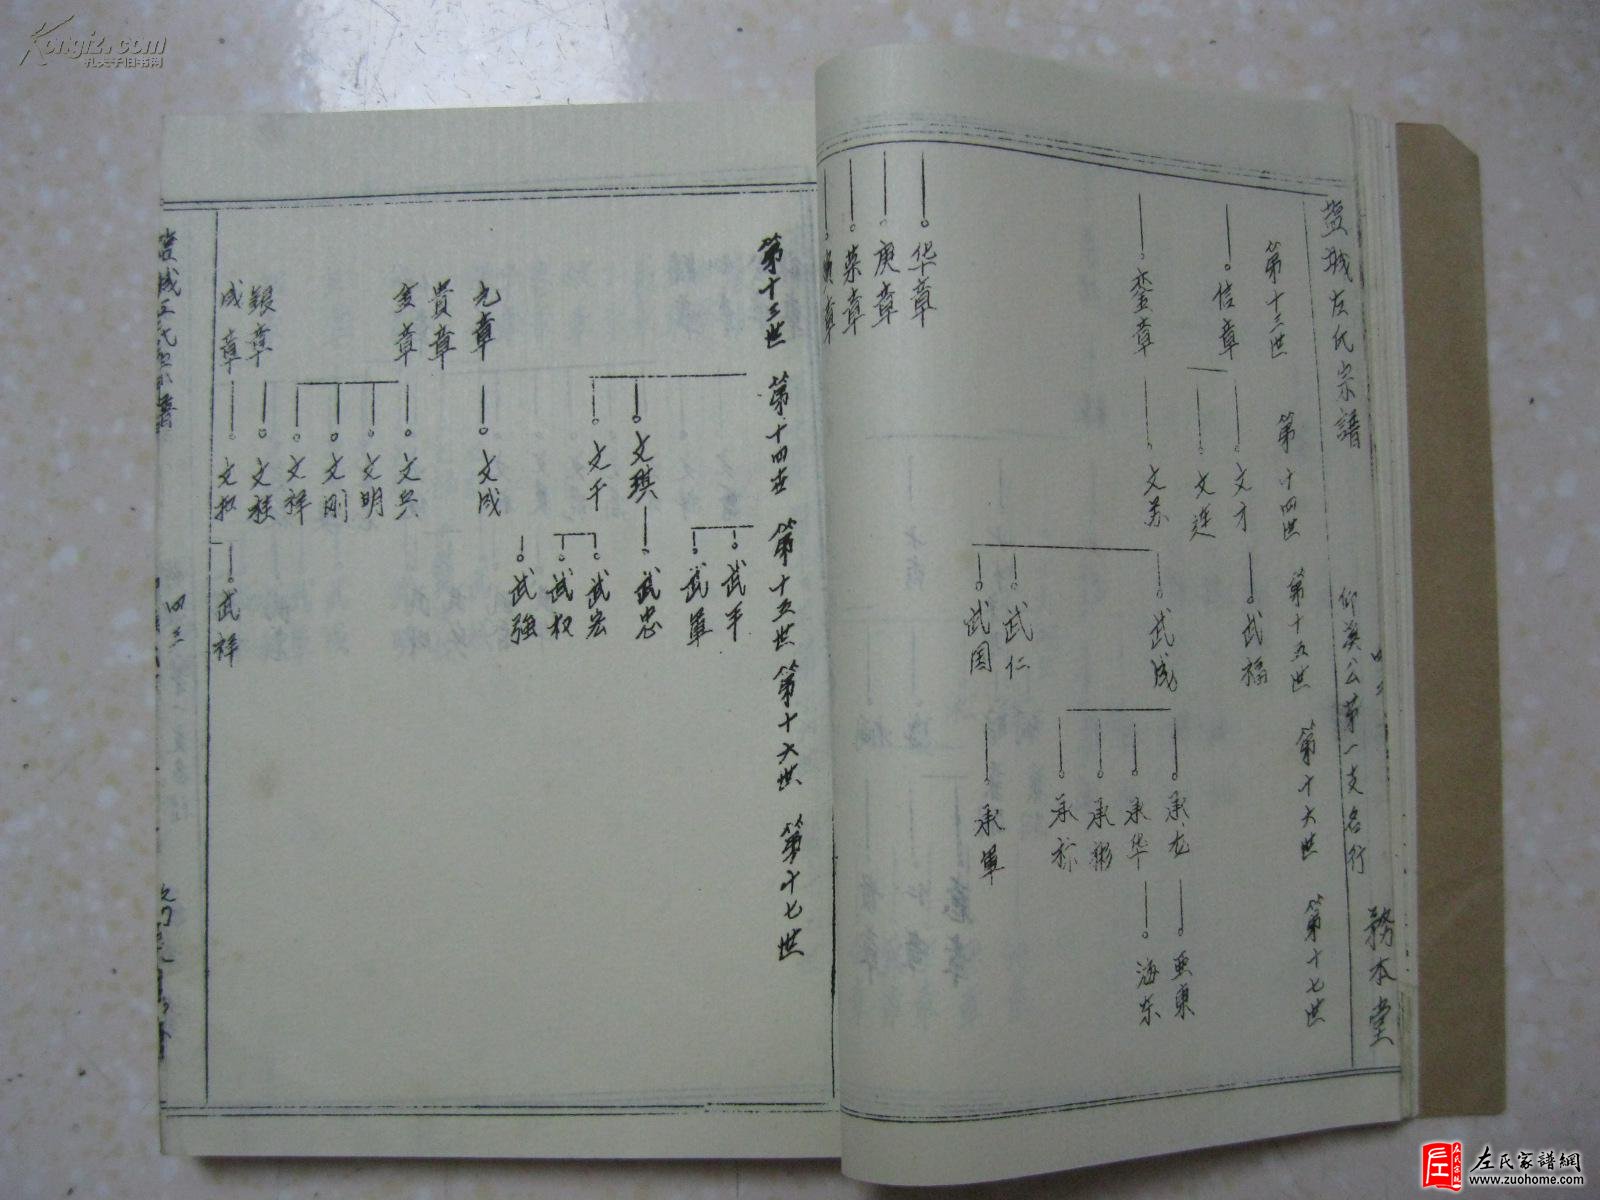 Kongfz.com
孔夫子旧书网
盐城左氏宗譜
仰溪公第一支名行
務本堂
第十三世
第十四世
第十五世
第十六世
第十七世
信章
文才
文连
武福
銮章
武成
武仁
武国
承龙
承华
承彬
承軍
亜東
海东
华章
庚章
荣章
第十三世
第十四世
第十五世
第十六世
第十七世
文琪
文千
武平
武軍
武忠
武宏
武权
武強
元章
貴章
文成
金章
文兵
文明
文刚
文祥
銀章
文桂
成章
武祥
四三
左氏家譜網
www.zuohome.com